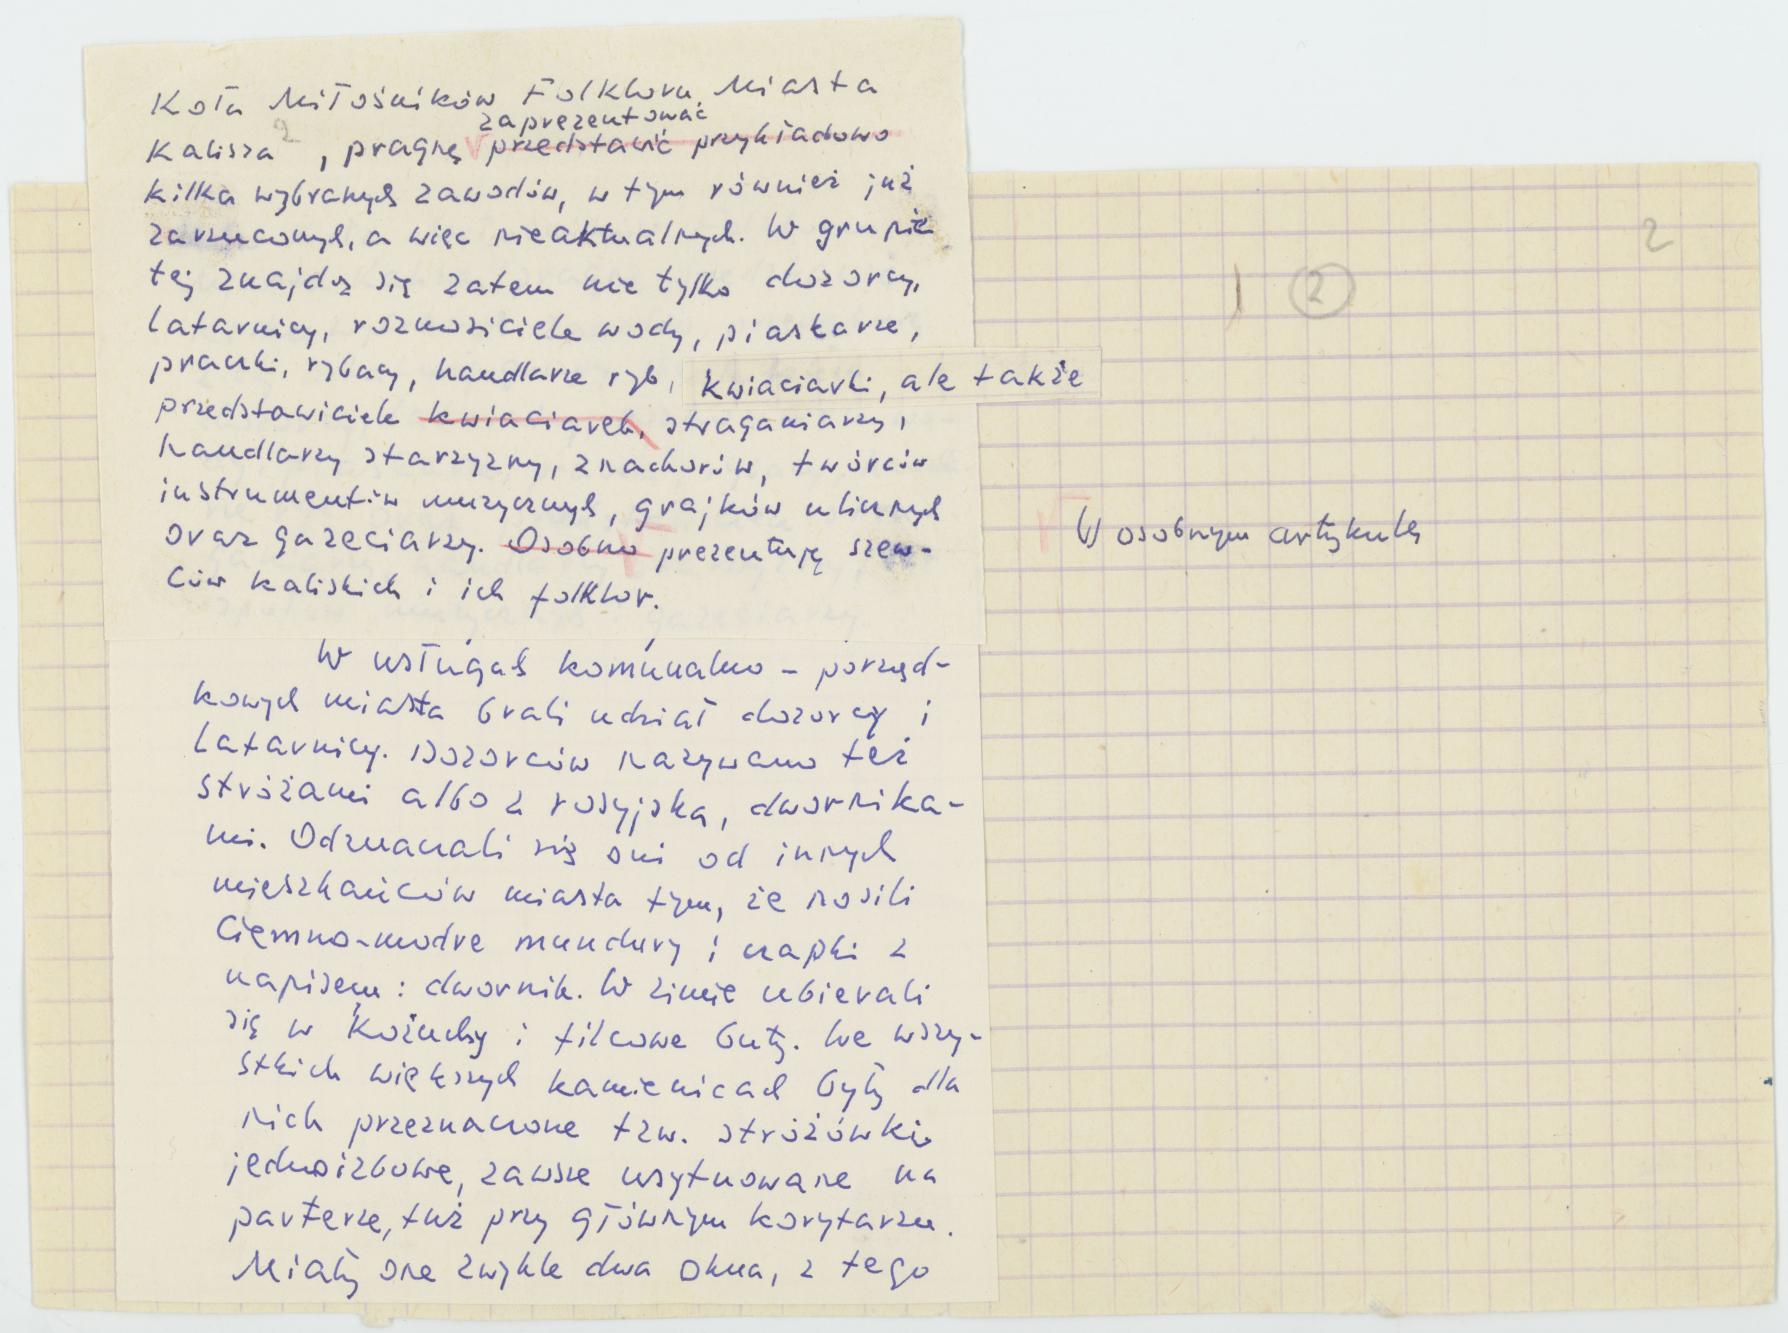 Koła Miłośników Folkloru Miasta
zaprezentować
Kalisza 2, pragnę przedstawić przykładowo
kilka wybranych zawodów, w tym również już
zarzuconych, a więc nieaktualnych. W grupie
tej znajdą się zatem nie tylko dozorcy,
latarnicy, roznosiciele wody, piaskarze,
praczki, rybacy, handlarze ryb, kwiaciarki, ale także
przedstawiciele kwiaciarek, straganiarzy,
handlarzy starzyzny, znachorów, twórców
instrumentów muzycznych, grajków ulicznych
oraz gazeciarzy. Osobno prezentuję szew-
ców kaliskich i ich folklor.
W usługach komunalno-porząd-
kowych miasta brali udział dozorcy i
latarnicy. Dozorców nazywano też
stróżami albo z rosyjska, dwornika-
mi. Odznaczali się oni od innych
mieszkańców miasta tym, że nosili
ciemno-modre mundury i czapki z
napisem: dwornik. W zimie ubierali
się w kożuchy i filcowe buty. We wszy-
stkich większych kamienicach były dla
nich przeznaczone tzw. stróżówki
jednoizbowe, zawsze usytuowane na
parterze, tuż przy głównym korytarzu.
Miały one zwykle dwa okna, z tego
2
) 2
W osobnym artykule